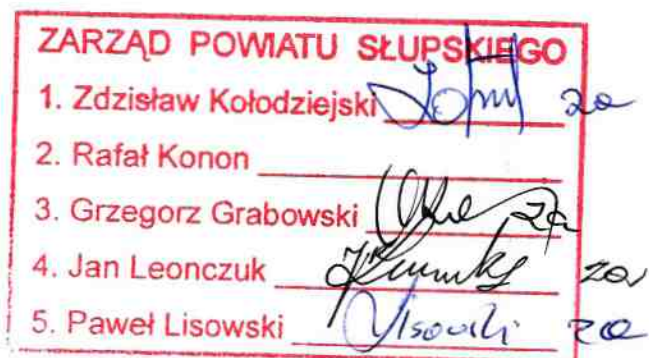 ZARZĄD POWIATU SŁUPSKIEGO
1. Zdzisław Kołodziejski za
2. Rafał Konon
3. Grzegorz Grabowski za
4. Jan Leonczuk za
5. Paweł Lisowski Lisowski za